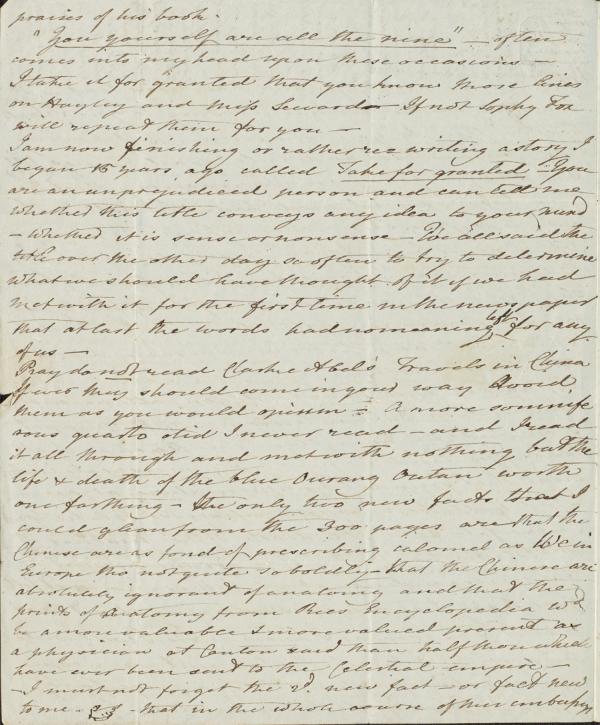 praises of his book.
"You yourself are all the nine" – often
comes into my head upon these occasions –
I take it for granted that you know those lines
on Hayley and Miss Seward – If not Sophy Fox
will repeat them for you –
I am now finishing or rather re writing a story I
began 15 years ago called Take for granted – You
are an unprejudiced person and can tell me
whether this title conveys any idea to your mind
– whether it is sense or nonsense – We all said the
title over the other day so often to try to determine
what we should have thought of it if we had
met with it for the first time in the newspaper
that at last the words had no meaning left for any
of us –
Pray do not read Clarke Abel's Travels in China
If ever they should come in your way Avoid
them as you would opium – A more somnife
rous quarto did I never read – and I read
it all through and met with nothing but the
life & death of the blue Ourang Outan worth
one farthing – the only two new facts that I
could glean from the 300 pages are that the
Chinese are as fond of prescribing calomel as We in
Europe tho not quite so boldly – that the Chinese are
absolutely ignorant of anatomy and that the
prints of anatomy from Rees Encyclopedia wd
be a more valuable & more valued present to
a physician at Canton than half those which
have ever been sent to the Celestial empire –
– I must not forget the 2d. new fact – or fact new
to me – – that in the whole course of this embassy